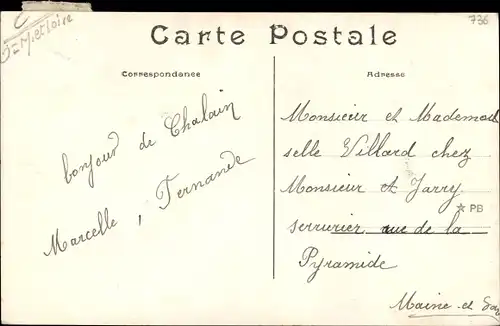 D=M.et Loire
736
Carte Postale
Correspondance
Adresse
bonjour de Chalain
Marcelle, Fernande
Monsieur et Mademoi
selle Villard chez
Monsieur et Jarry
PB
serrurier rue de la
Pyramide
Maine et